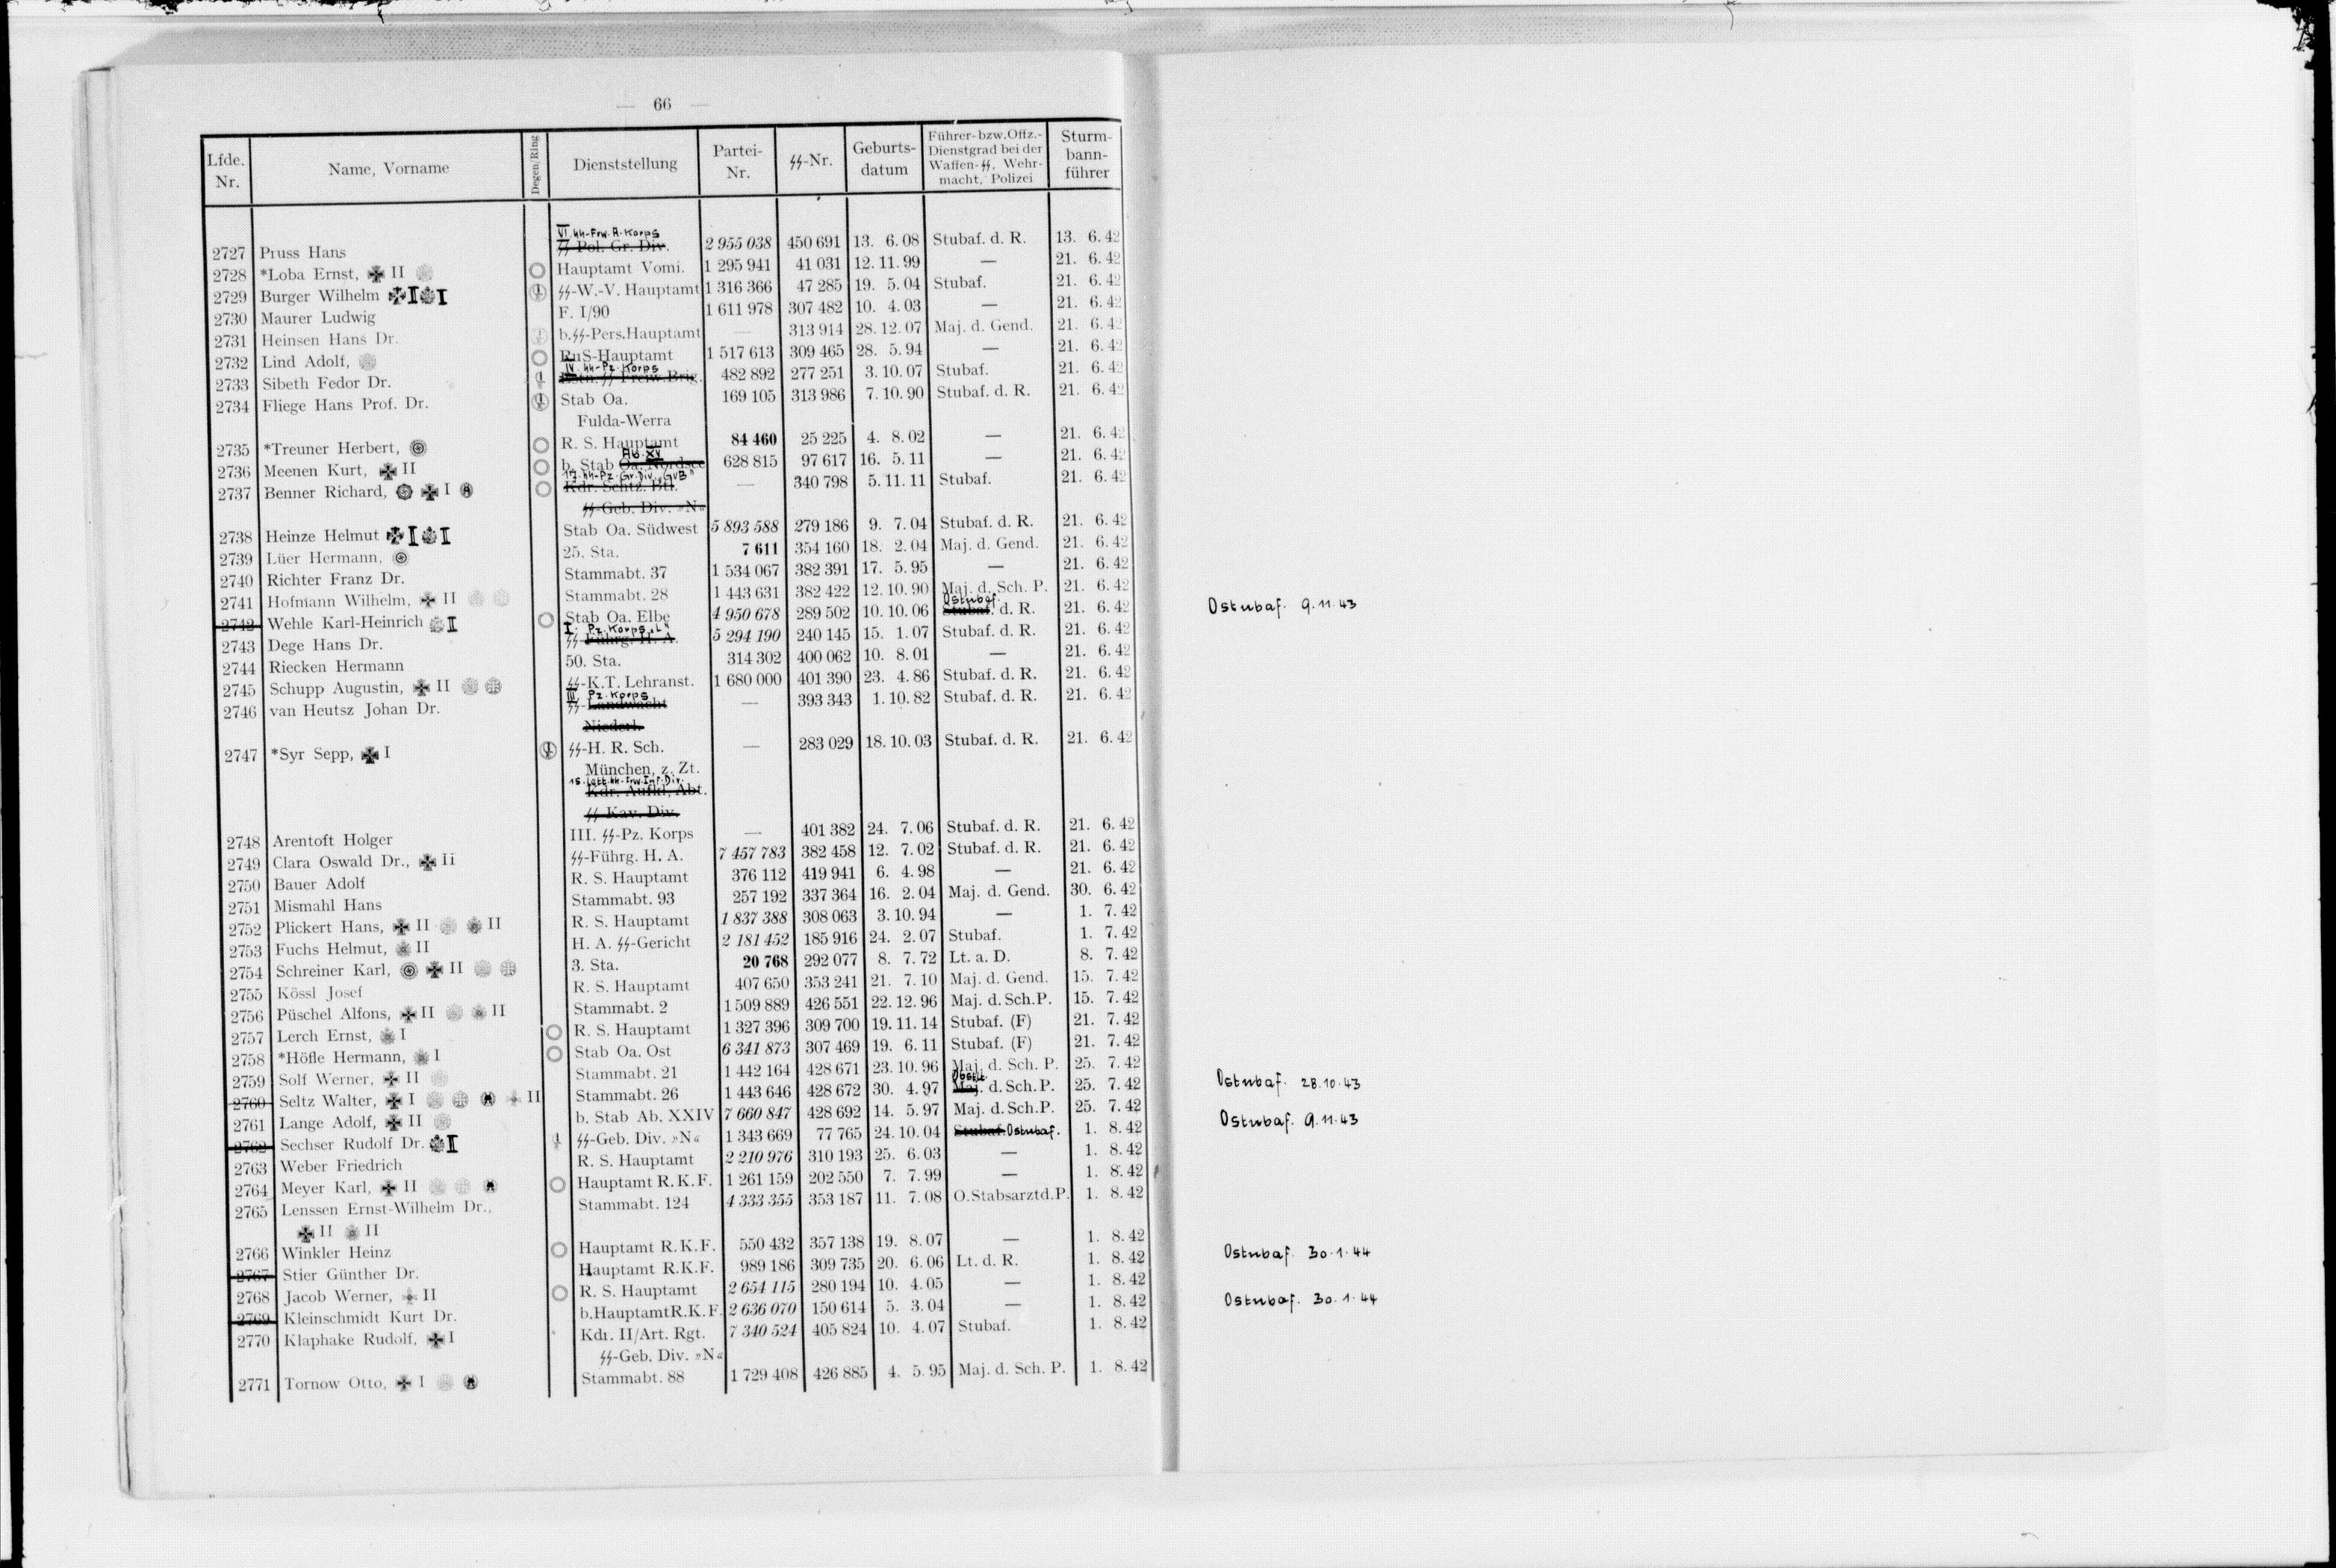 — 66 —
Lfde. Nr. Name, Vorname Degen/Ring Dienststellung Partei-Nr. SS-Nr. Geburts-datum Führer- bzw. Offz.-Dienstgrad bei der Waffen-SS, Wehr-macht, Polizei Sturm-bann-führer
VI. SS-Frw. A. Korps
2727 Pruss Hans SS Pol. Gr. Div. 2 955 038 450 691 13. 6. 08 Stubaf. d. R. 13. 6. 42
2728 *Loba Ernst, II Hauptamt Vomi. 1 295 941 41 031 12. 11. 99 — 21. 6. 42
2729 Burger Wilhelm I I SS-W.-V. Hauptamt 1 316 366 47 285 19. 5. 04 Stubaf. 21. 6. 42
2730 Maurer Ludwig F. I/90 1 611 978 307 482 10. 4. 03 — 21. 6. 42
2731 Heinsen Hans Dr. b. SS-Pers. Hauptamt — 313 914 28. 12. 07 Maj. d. Gend. 21. 6. 42
2732 Lind Adolf, RuS-Hauptamt 1 517 613 309 465 28. 5. 94 — 21. 6. 42
IV. SS-Pz. Korps
2733 Sibeth Fedor Dr. Estn. SS Freiw. Brig. 482 892 277 251 3. 10. 07 Stubaf. 21. 6. 42
2734 Fliege Hans Prof. Dr. Stab Oa. 169 105 313 986 7. 10. 90 Stubaf. d. R. 21. 6. 42
Fulda-Werra
2735 *Treuner Herbert, R. S. Hauptamt 84 460 25 225 4. 8. 02 — 21. 6. 42
Ab. XV
2736 Meenen Kurt, II b. Stab Oa. Nordsee 628 815 97 617 16. 5. 11 — 21. 6. 42
17. SS-Pz. Gr. Div. „GvB"
2737 Benner Richard, I Kdr. Schtz. Btl. — 340 798 5. 11. 11 Stubaf. 21. 6. 42
SS-Geb. Div. »N«
2738 Heinze Helmut I I Stab Oa. Südwest 5 893 588 279 186 9. 7. 04 Stubaf. d. R. 21. 6. 42
2739 Lüer Hermann, 25. Sta. 7 611 354 160 18. 2. 04 Maj. d. Gend. 21. 6. 42
2740 Richter Franz Dr. Stammabt. 37 1 534 067 382 391 17. 5. 95 — 21. 6. 42
2741 Hofmann Wilhelm, II Stammabt. 28 1 443 631 382 422 12. 10. 90 Maj. d. Sch. P. 21. 6. 42
Ostubaf.
2742 Wehle Karl-Heinrich II Stab Oa. Elbe 4 950 678 289 502 10. 10. 06 Stubaf. d. R. 21. 6. 42 Ostubaf. 9.11.43
I. Pz. Korps „L"
2743 Dege Hans Dr. SS Führg. H. A. 5 294 190 240 145 15. 1. 07 Stubaf. d. R. 21. 6. 42
2744 Riecken Hermann 50. Sta. 314 302 400 062 10. 8. 01 — 21. 6. 42
2745 Schupp Augustin, II SS-K.T. Lehranst. 1 680 000 401 390 23. 4. 86 Stubaf. d. R. 21. 6. 42
III. Pz. Korps
2746 van Heutsz Johan Dr. SS-Landwacht — 393 343 1. 10. 82 Stubaf. d. R. 21. 6. 42
Niederl.
2747 *Syr Sepp, I SS-H. R. Sch. — 283 029 18. 10. 03 Stubaf. d. R. 21. 6. 42
München, z. Zt.
15. Lett. SS-Frw. Inf. Div.
Kdr. Aufkl. Abt.
SS Kav. Div.
2748 Arentoft Holger III. SS-Pz. Korps — 401 382 24. 7. 06 Stubaf. d. R. 21. 6. 42
2749 Clara Oswald Dr., Ii SS-Führg. H. A. 7 457 783 382 458 12. 7. 02 Stubaf. d. R. 21. 6. 42
2750 Bauer Adolf R. S. Hauptamt 376 112 419 941 6. 4. 98 — 21. 6. 42
2751 Mismahl Hans Stammabt. 93 257 192 337 364 16. 2. 04 Maj. d. Gend. 30. 6. 42
2752 Plickert Hans, II II R. S. Hauptamt 1 837 388 308 063 3. 10. 94 — 1. 7. 42
2753 Fuchs Helmut, II H. A. SS-Gericht 2 181 452 185 916 24. 2. 07 Stubaf. 1. 7. 42
2754 Schreiner Karl, II 3. Sta. 20 768 292 077 8. 7. 72 Lt. a. D. 8. 7. 42
2755 Kössl Josef R. S. Hauptamt 407 650 353 241 21. 7. 10 Maj. d. Gend. 15. 7. 42
2756 Püschel Alfons, II II Stammabt. 2 1 509 889 426 551 22. 12. 96 Maj. d. Sch. P. 15. 7. 42
2757 Lerch Ernst, I R. S. Hauptamt 1 327 396 309 700 19. 11. 14 Stubaf. (F) 21. 7. 42
2758 *Höfle Hermann, I Stab Oa. Ost 6 341 873 307 469 19. 6. 11 Stubaf. (F) 21. 7. 42
2759 Solf Werner, II Stammabt. 21 1 442 164 428 671 23. 10. 96 Maj. d. Sch. P. 25. 7. 42
Obstlt.
2760 Seltz Walter, I II Stammabt. 26 1 443 646 428 672 30. 4. 97 Maj. d. Sch. P. 25. 7. 42 Ostubaf. 28.10.43
2761 Lange Adolf, II b. Stab Ab. XXIV 7 660 847 428 692 14. 5. 97 Maj. d. Sch. P. 25. 7. 42
2762 Sechser Rudolf Dr. II SS-Geb. Div. »N« 1 343 669 77 765 24. 10. 04 Stubaf. Ostubaf. 1. 8. 42 Ostubaf. 9.11.43
2763 Weber Friedrich R. S. Hauptamt 2 210 976 310 193 25. 6. 03 — 1. 8. 42
2764 Meyer Karl, II Hauptamt R. K. F. 1 261 159 202 550 7. 7. 99 — 1. 8. 42
2765 Lenssen Ernst-Wilhelm Dr., Stammabt. 124 4 333 355 353 187 11. 7. 08 O. Stabsarzt d. P. 1. 8. 42
II II
2766 Winkler Heinz Hauptamt R. K. F. 550 432 357 138 19. 8. 07 — 1. 8. 42
2767 Stier Günther Dr. Hauptamt R. K. F. 989 186 309 735 20. 6. 06 Lt. d. R. 1. 8. 42 Ostubaf. 30.1.44
2768 Jacob Werner, II R. S. Hauptamt 2 654 115 280 194 10. 4. 05 — 1. 8. 42
2769 Kleinschmidt Kurt Dr. b. Hauptamt R. K. F. 2 636 070 150 614 5. 3. 04 — 1. 8. 42 Ostubaf. 30.1.44
2770 Klaphake Rudolf, I Kdr. II/Art. Rgt. 7 340 524 405 824 10. 4. 07 Stubaf. 1. 8. 42
SS-Geb. Div. »N«
2771 Tornow Otto, I Stammabt. 88 1 729 408 426 885 4. 5. 95 Maj. d. Sch. P. 1. 8. 42